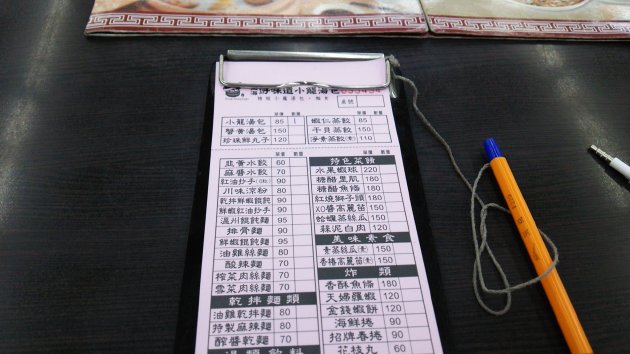 好味道小籠湯包
桌號
單價 數量 單價 數量
小籠湯包 85 蝦仁蒸餃 85
蟹黃湯包 150 干貝蒸餃 110
珍珠鮮丸子 120 淨素蒸餃(素) 110
單價 數量 單價 數量
韭黃水餃 60 特色菜餚
麻醬水餃 70 水果蝦球 220
紅油抄手 90 糖醋里肌 180
川味涼粉 80 糖醋魚條 180
乾拌鮮蝦餛飩 90 紅燒獅子頭 180
鮮蝦紅油抄手 90 XO醬高麗苗 150
溫州餛飩麵 95 蛤蠣蒸絲瓜 150
排骨麵 90 蒜泥白肉 140
鮮蝦餛飩麵 95 美味素食
油雞絲麵 80 素蒸絲瓜(素) 150
酸辣麵 70 香椿高麗苗(素) 150
榨菜肉絲麵 70 炸類
雪菜肉絲麵 70 香酥魚條 180
乾拌麵類 天婦羅蝦 120
油雞乾拌麵 80 金錢蝦餅 120
特製麻辣麵 80 海鮮捲 90
醡醬乾麵 70 招牌春捲 90
花枝丸 80